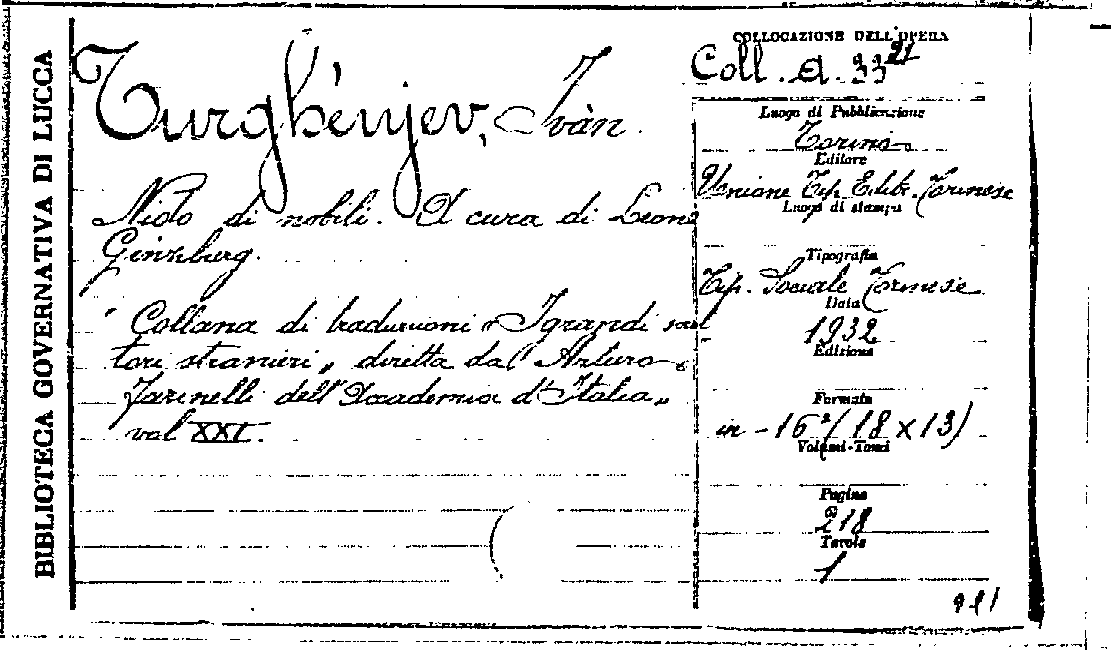 BIBLIOTECA GOVERNATIVA DI LUCCA
Turghénjev, Iván.
Nido di nobili. A cura di Leone
Ginzburg.
"Collana di traduzioni "I grandi scrit
tori stranieri" diretta da Arturo
Farinelli dell'Accademia d'Italia"
vol XXI.
COLLOCAZIONE DELL'OPERA
Coll. A. 33 21
Luogo di Pubblicazione
Torino
Editore
Unione Tip. Edit. Torinese
Luogo di stampa
Tipografia
Tip. Sociale Torinese
Data
1932
Edizione
Formato
in - 16° (18 x 13)
Volumi-Tomi
Pagine
218
Tavole
1